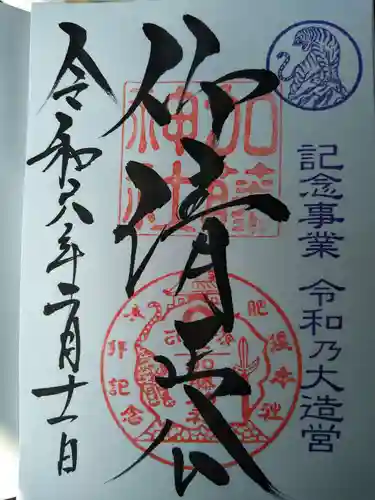 記念事業 令和乃大造営
仰清正公
加藤
神社
令和六年二月十一日